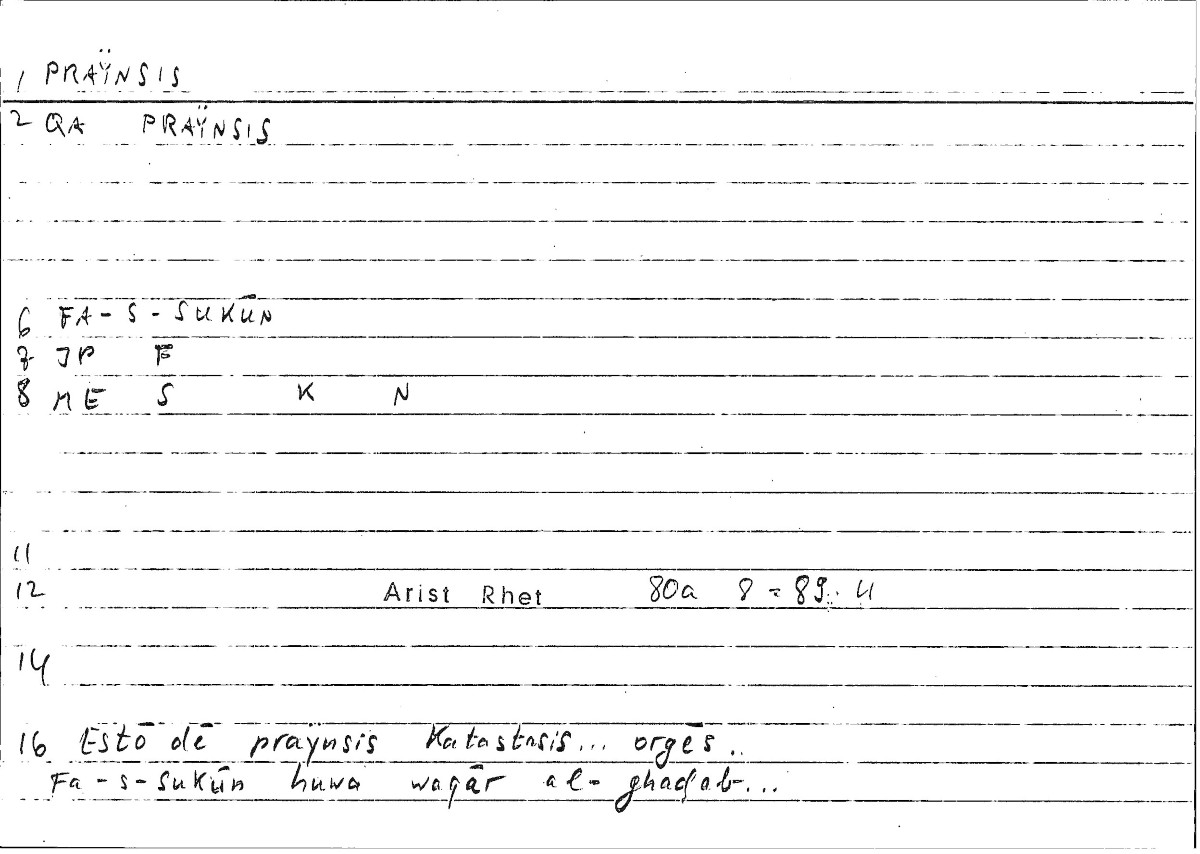 1 PRAŸNSIS
2 QA PRAŸNSIS
6 FA-S-SUKŪN
7 JP F
8 ME S K N
11
12 Arist Rhet 80a 8 = 89. 4
14
16 Estō dē praÿnsis Katastasis... orgēs..
Fa-s-sukūn huwa waqār al-ghaḍab...